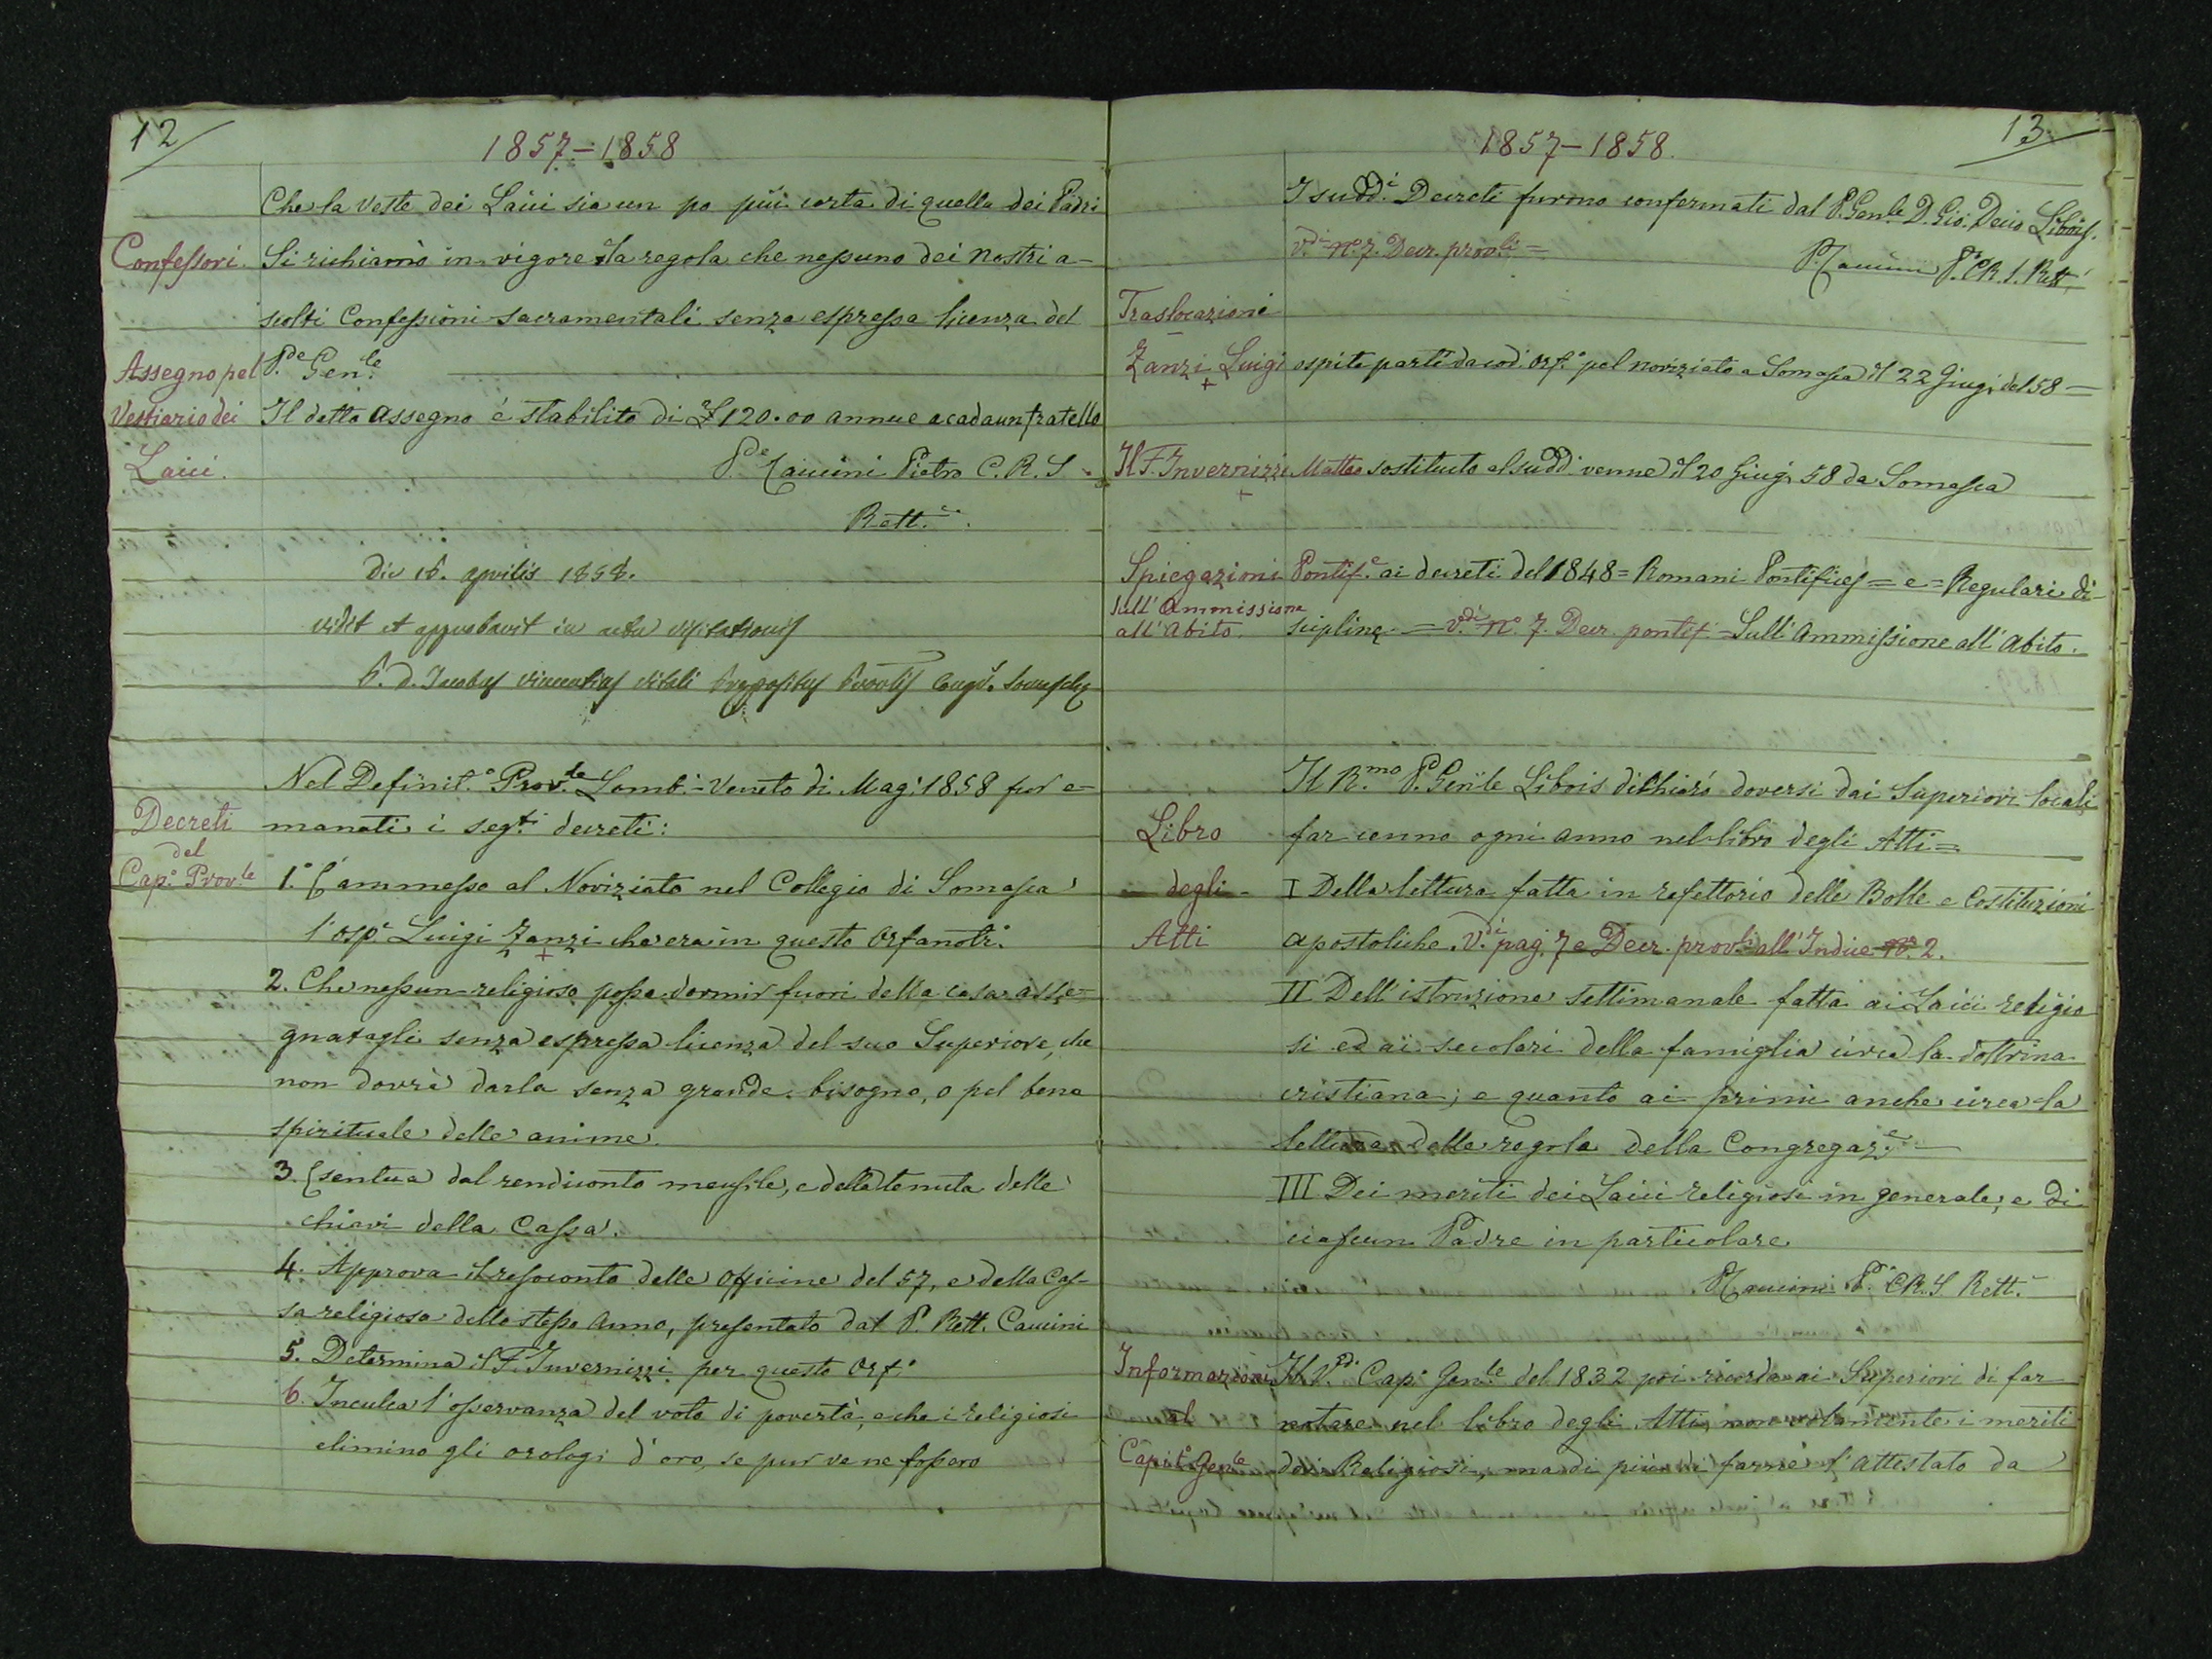 12
1857-1858
Che la Veste dei Laici sia un po più corta di quella dei Padri
Confessori. Si richiamò in vigore la regola che nessuno dei Nostri a-
scolti Confessioni sacramentali senza espressa licenza del
P.de Gen.le
Assegno pel
Vestiario dei Il detto Assegno è stabilito di £ 120.00 annue a cadaun fratello
Laici. P.de Caucini Pietro C. R. S.
Rett.e
Die 18. aprilis 1858.
vidit et approbavit in actu visitationis
P. D. Jacobus Vincentius Vitali Praepositus Prov.lis Congr. Somaschae
Nel Definit.o Prov.le Lomb.-Veneto di Mag. 1858 fur e-
Decreti manati i seg.ti decreti:
del
Cap.o Prov.le 1.o È ammesso al Noviziato nel Collegio di Somasca
l'osp.e Luigi Zanzi che era in questo Orfanotr.o
+
2. Che nessun religioso possa dormir fuori della casa asse-
gnatagli senza espressa licenza del suo Superiore, che
non dovrà darla senza grande bisogno, o pel bene
spirituale delle anime.
3. Esentua dal rendiconto mensile, e della tenuta delle
chiavi della Cassa.
4. Approva il resoconto delle Officine del 57, e della Cas-
sa religiosa dello stesso Anno, presentato dal P. Rett. Caucini
5. Determina il F. Invernizzi per questo Orf.o
6. Inculca l'osservanza del voto di povertà, e che i religiosi
elimino gli orologi d'oro, se pur ve ne fossero
13.
1857-1858.
I sudd.i Decreti furono confermati dal P. Gen.le D. Gio. Decio Libois.
V.di N.o 7. Decr. prov.li =
P. Caucini P.o C.R.S. Rett.
Traslocazioni
Zanzi Luigi ospite partì da cod. Orf.o pel noviziato a Somasca il 22 Giug. del 58 =
+
Il F. Invernizzi Matteo sostituito al sudd. venne il 20 Giug. 58 da Somasca
+
Spiegazioni Pontif.e ai decreti del 1848 = Romani Pontifices = e = Regulari di-
sull'Ammissione
all'Abito. sciplinę = V.di N.o 7. Decr. pontif. = Sull'Ammissione all'Abito.
Il R.mo P. Gen.le Libois dichiarò doversi dai Superiori locali
Libro far cenno ogni anno nel libro degli Atti =
degli I Della lettura fatta in refettorio delle Bolle e Costituzioni
Atti apostoliche. V.di pag. 7 e Decr. prov.li all'Indice N.o 2.
II Dell'istruzione settimanale fatta ai Laici religio
si ed ai secolari della famiglia circa la dottrina
cristiana; e quanto ai primi anche circa la
lettura delle regola della Congregaz.e
III Dei meriti dei Laici religiosi in generale, e di
ciascun Padre in particolare
P. Caucini P. C.R.S Rett.
Informazioni Il V. Cap.o Gen.le del 1832 poi ricorda ai Superiori di far
al notare nel libro degli Atti, non solamente i meriti
Capit.o Gen.le dei Religiosi, ma di più di farne l'attestato da